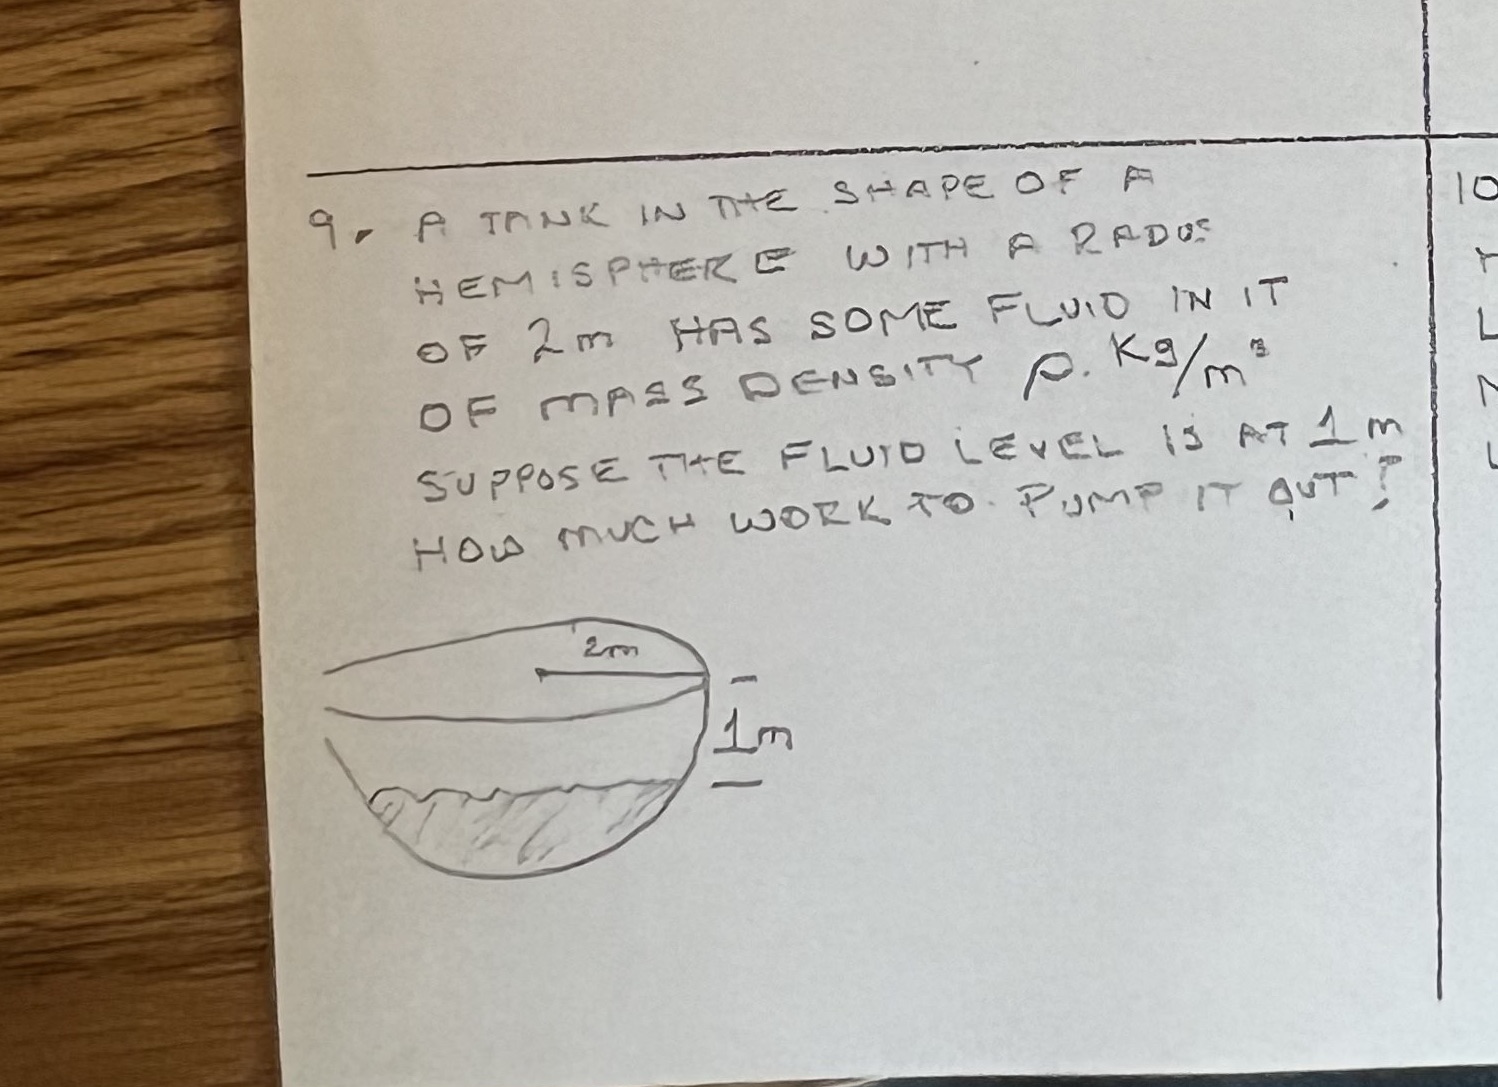 9. A TANK IN THE SHAPE OF A
HEMISPHERE WITH A RADUS
OF 2m HAS SOME FLUID IN IT
OF MASS DENSITY ρ. Kg/m³
SUPPOSE THE FLUID LEVEL IS AT 1m
HOW MUCH WORK TO PUMP IT OUT?
2m
1m
10